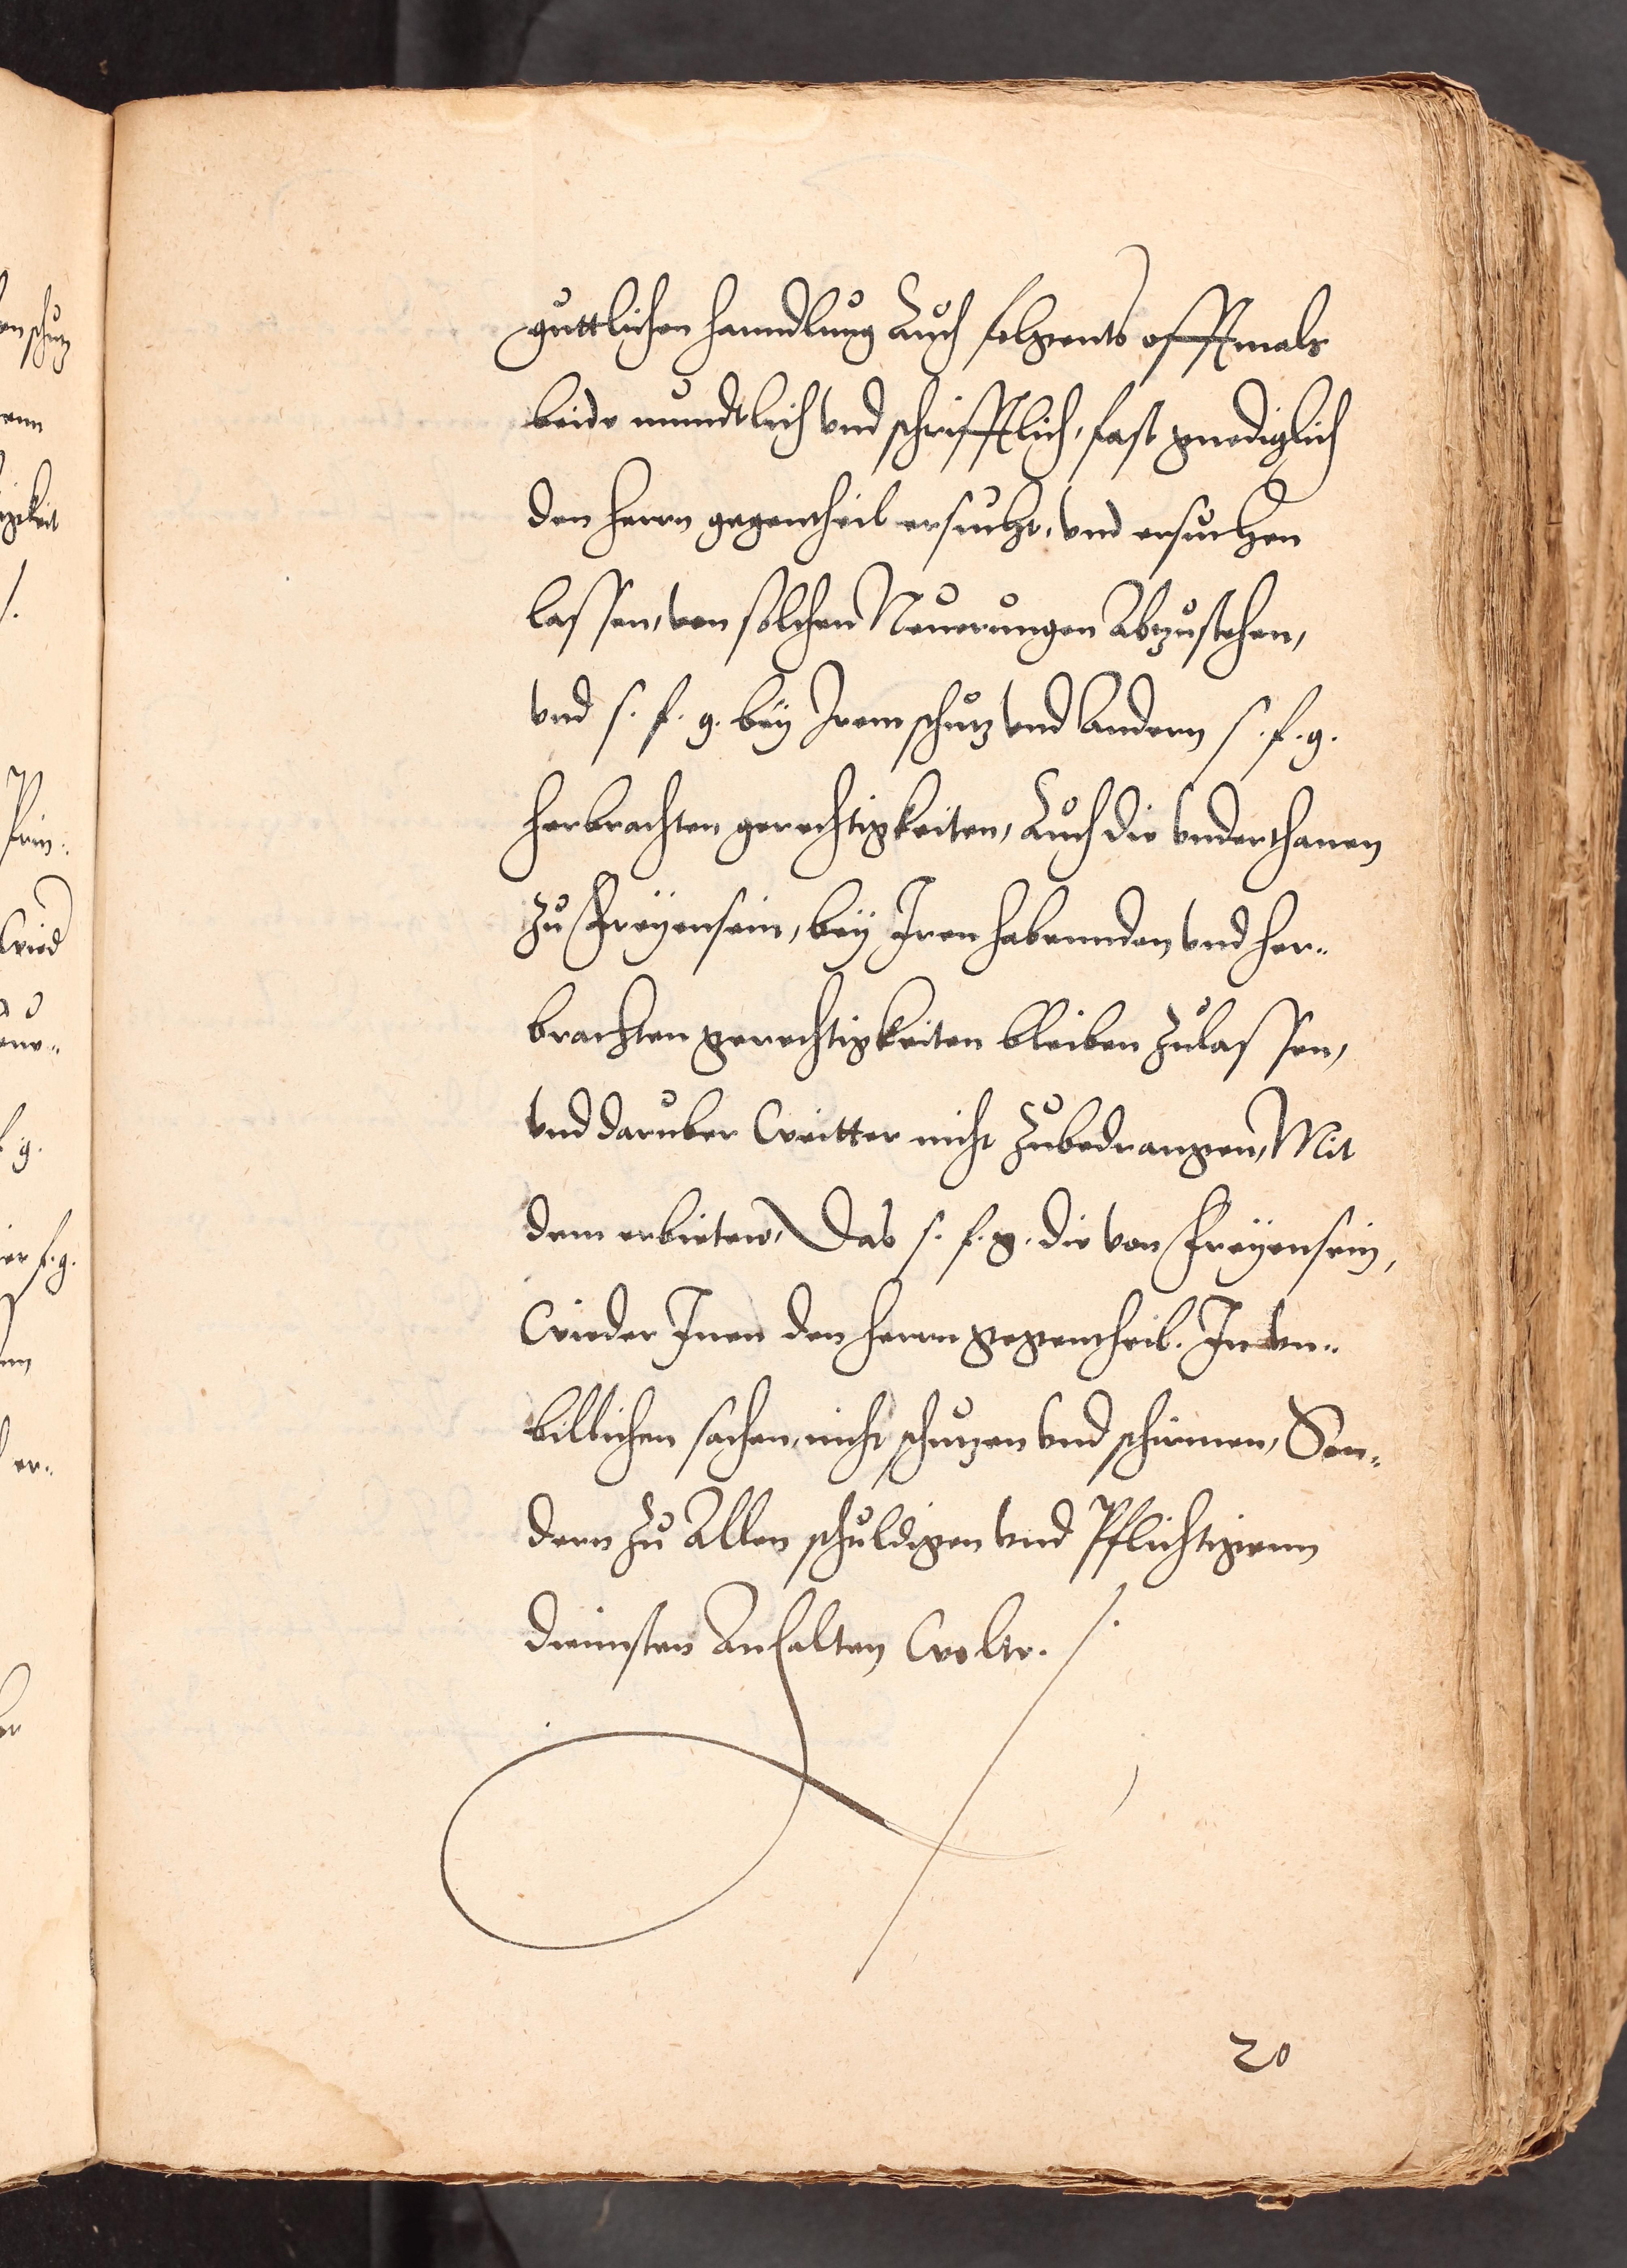 guttlichen hanndlung Auch folgents offtmals
beide mundtlich vnd schrifftlich, fast gnediglich
den herrn gegentheil ersucht, vnd ersuchen
lassen, von solchen Neuerungen Abzustehen,
vnd s. f. g. bey Irem schutz vnd Andern s. f. g.
herbrachten gerechtigkeiten, Auch die vnderthanen
zu Freyensein, bey Iren habennden vnd her„
brachten gerechtigkeiten bleiben zulassen,
vnd daruber Weitter nicht zubedrangen, Mit
dem erbieten, Das s. f. g. die von Freyensein,
Wieder Inen den herrn gegentheil. In vn„
billichen sachen, nicht schutzen vnd schirmen, Son„
dern zu Allen schuldigen vnd Pflichtigenn
diennsten Anhalten Wolte.
20